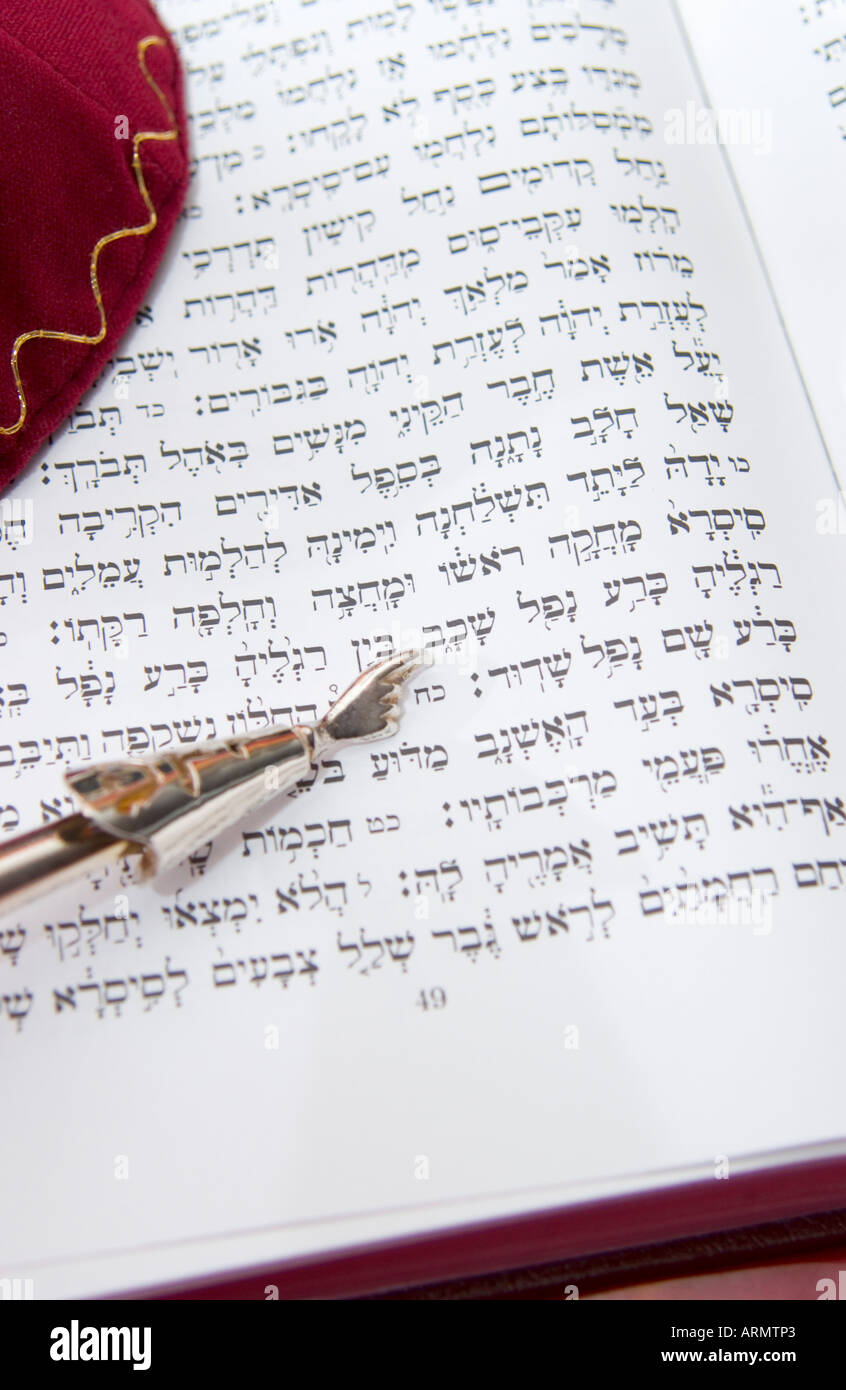 נַפְשׁוֹ לָמוּת וְנַפְתָּלִי
מְלָכִים נִלְחָמוּ אָז נִלְחֲמוּ
מְגִדּוֹ בֶּצַע כֶּסֶף לֹא לָקָחוּ: כ מִן
מִמְּסִלּוֹתָם נִלְחֲמוּ עִם־סִיסְרָא: כא
נַחַל קְדוּמִים נַחַל קִישׁוֹן תִּדְרְכִי
הָלְמוּ עִקְּבֵי־סוּס מִדַּהֲרוֹת דַּהֲרוֹת
מֵרוֹז אָמַר מַלְאַךְ יְהוָה אֹרוּ אָרוֹר
לְעֶזְרַת יְהוָה לְעֶזְרַת יְהוָה בַּגִּבּוֹרִים: כד
יָעֵל אֵשֶׁת חֶבֶר הַקֵּינִי מִנָּשִׁים בָּאֹהֶל תְּבֹרָךְ:
שָׁאַל חָלָב נָתָנָה בְּסֵפֶל אַדִּירִים הִקְרִיבָה
כו יָדָהּ לַיָּתֵד תִּשְׁלַחְנָה וִימִינָהּ לְהַלְמוּת עֲמֵלִים
סִיסְרָא מָחֲקָה רֹאשׁוֹ וּמָחֲצָה וְחָלְפָה רַקָּתוֹ:
רַגְלֶיהָ כָּרַע נָפַל שָׁכָב בֵּין רַגְלֶיהָ כָּרַע נָפָל
כָּרַע שָׁם נָפַל שָׁדוּד: כח הַחַלּוֹן נִשְׁקְפָה
סִיסְרָא בְּעַד הָאֶשְׁנָב מַדּוּעַ
אֶחֱרוּ פַּעֲמֵי מַרְכְּבוֹתָיו: כט חַכְמוֹת
אַף־הִיא תָּשִׁיב אֲמָרֶיהָ לָהּ: ל הֲלֹא יִמְצְאוּ יְחַלְּקוּ
רַחֲמָתַיִם לְרֹאשׁ גֶּבֶר שְׁלַל צְבָעִים לְסִיסְרָא
49
alamy
Image ID: ARMTP3
www.alamy.com